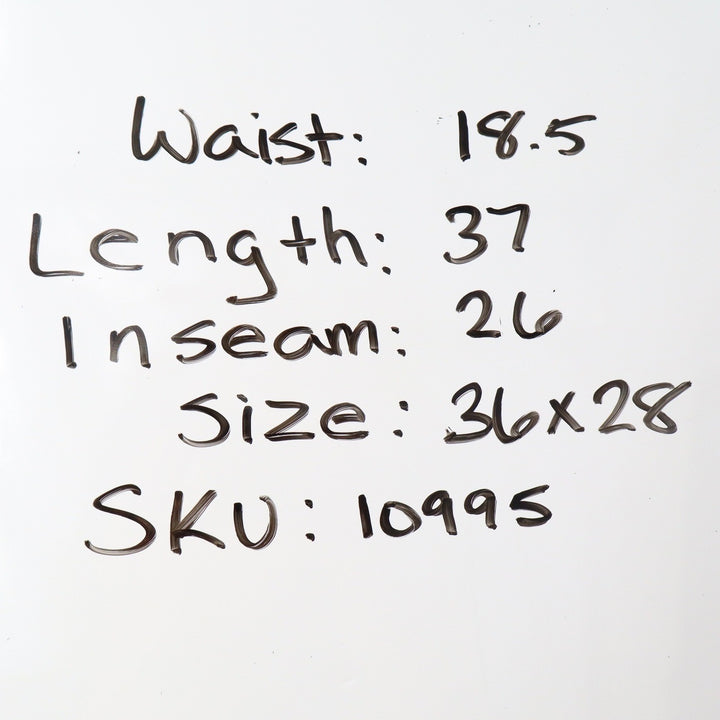 Waist: 18.5
Length: 37
Inseam: 26
Size: 36x28
SKU: 10995